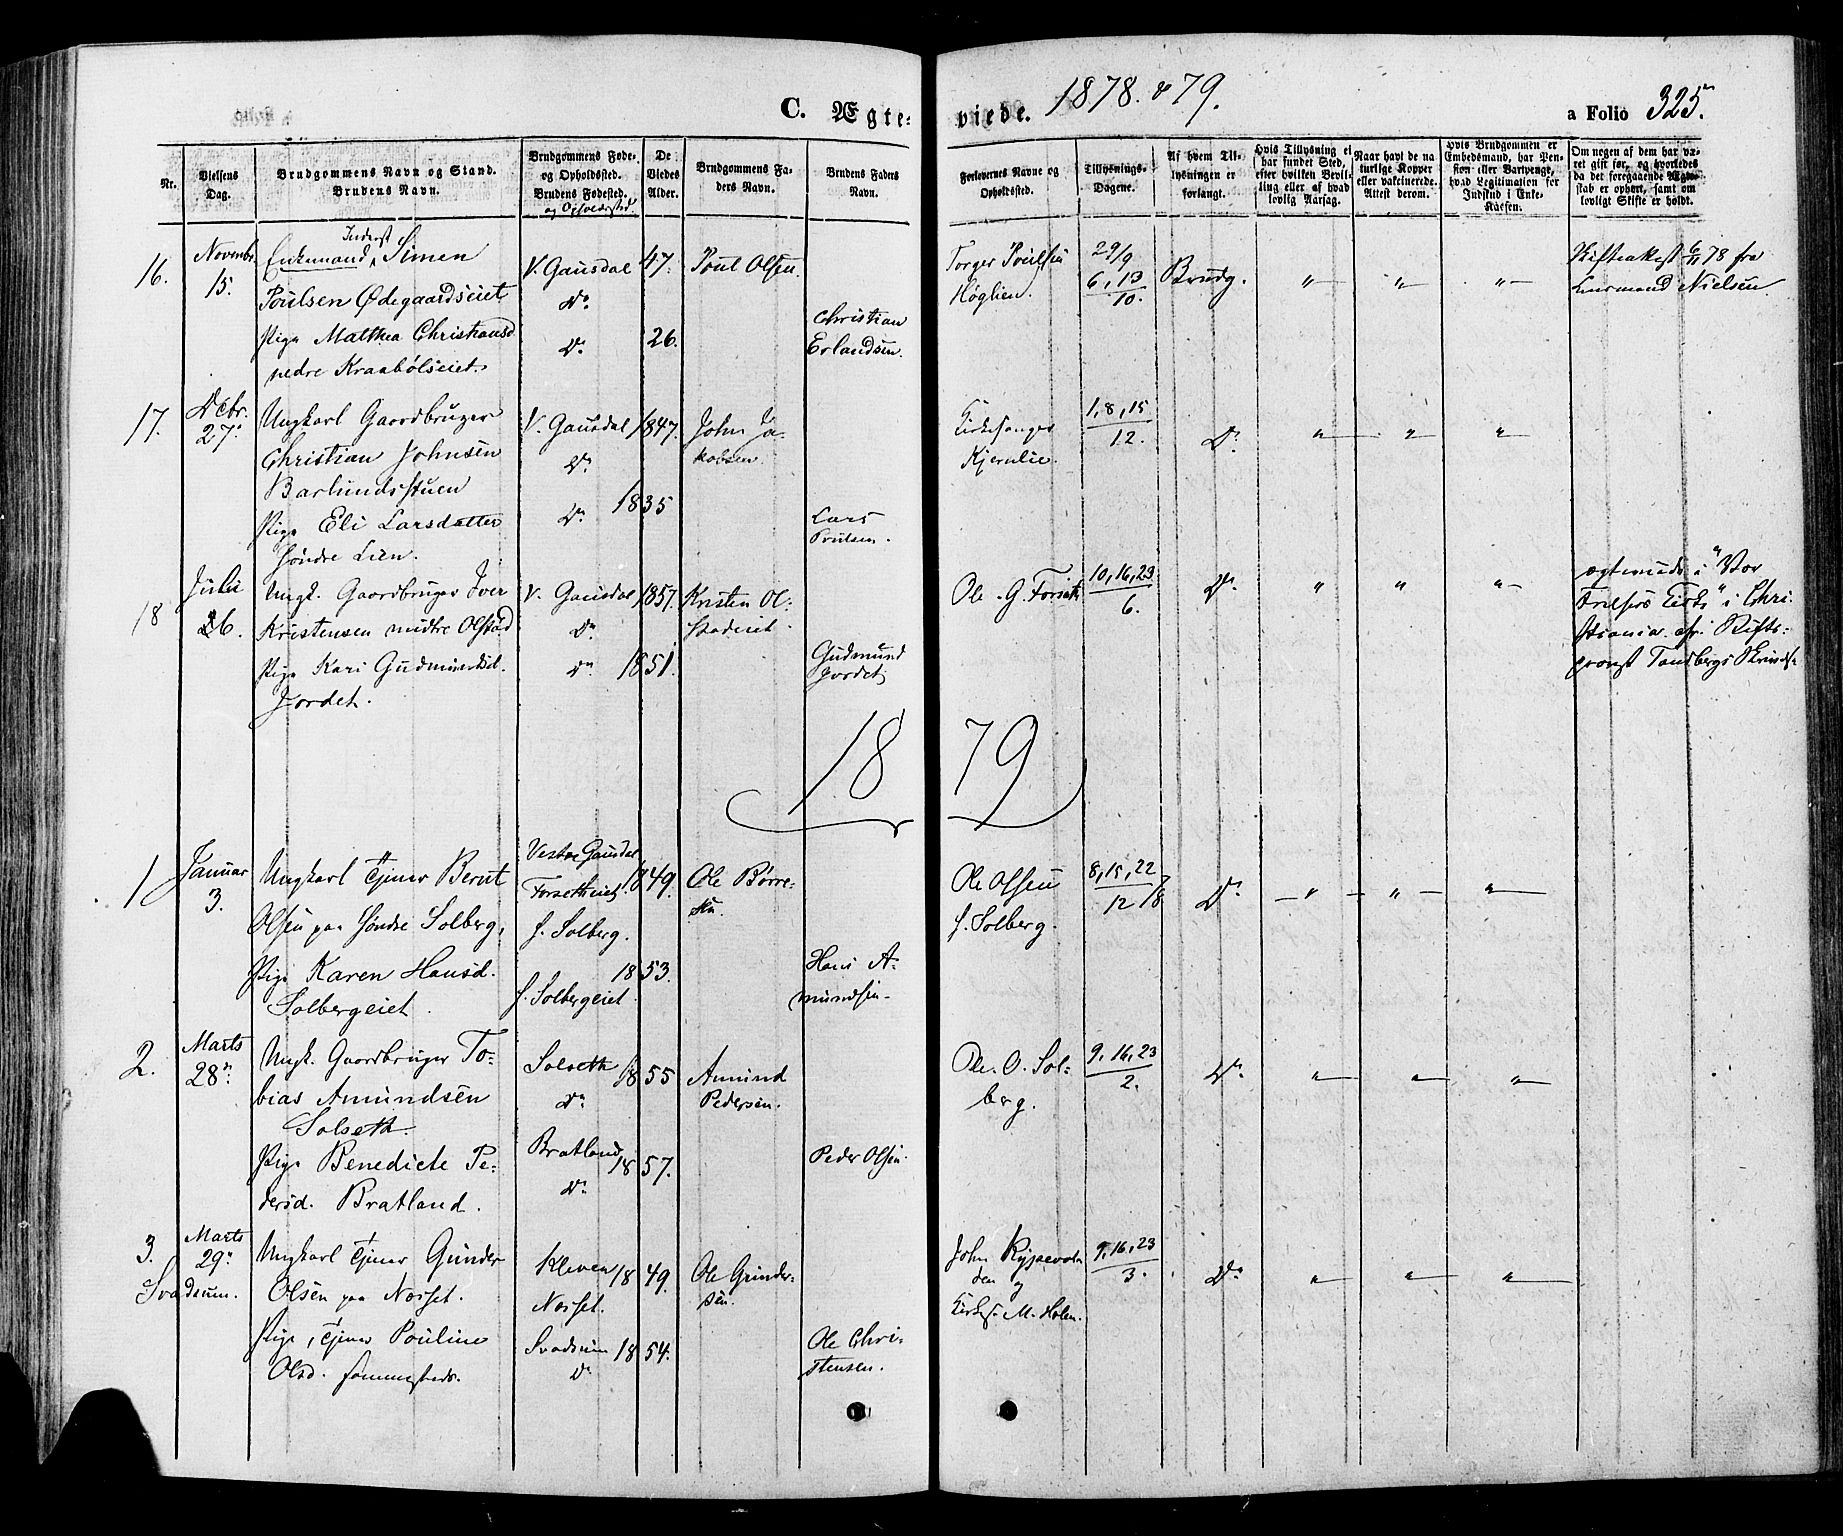 C. Ægte-
viede. 1878. & 79.
a Folio 325.
Nr.
Vielsens Dag.
Brudgommens Navn og Stand.
Brudens Navn.
Brudgommens Føde-
og Opholdsted.
Brudens Fødested.
og Opholdssted.
De
Viedes
Alder.
Brudgommens Fa-
ders Navn.
Brudens Faders
Navn.
Forlovernes Navne og
Opholdssted.
Tillysnings-
Dagene.
Af hvem Til-
lysningen er
forlangt.
Hvis Tillysning ei
har fundet Sted,
efter hvilken Bevil-
ling eller af hvad
lovlig Aarsag.
Naar havt de na-
turlige Kopper
eller vaccinerede.
Attest derom.
Hvis Brudgommen er
Embedsmand, har Pen-
sion eller Vartpenge,
hvad Legitimation for
Indskud i Enke-
Kassen.
Om nogen af dem har væ-
ret gift før, og hvorledes
da det foregaaende Ægte-
skab er ophørt, samt om
lovligt Skifte er holdt.
16.
Novembr.
15.
Inderst
Enkemand Simen
Poulsen Ødegaardseiet
Pige Mathea Christiansd
nedre Kraabølseiet.
V. Gausdal
Do
Do
47.
26.
Poul Olsen.
Christian
Erlandsen.
Torger Poulsen
Høglien.
29/9
6, 13
10.
Brudg.
" " "
Skifteattest 6/11 78 fra
Lensmand Nielsen.
17.
Dcbr.
27.
Ungkarl Gaardbruger
Christian Johnsen
Barlundsstuen
Pige Eli Larsdatter
Søndre Lien.
V. Gausdal
Do
Do
1847.
1835
John Ja-
kobsen.
Lars
Poulsen.
Kirkesanger
Kjernlie.
1, 8, 15
12.
Do
" " "
18
Juli
26.
Ungk. Gaardbruger Iver
Kristensen midtre Olstad
Pige Kari Gudmundsd.
Jordet.
V. Gausdal
Do
Do
1857.
1851.
Kristen Ol-
stadeiet.
Gudmund
Jordet
Ole. G. Forseth
10, 16, 23
6.
Do
" " "
ægteviede i "Vor
Frelsers Kirke" i Chri-
stiania. cfr. Stifts-
provst Tandbergs Skrivelse
1879
1
Januar
3.
Ungkarl Tjener Bernt
Olsen paa Søndre Solberg,
Pige Karen Hansd.
Solbergeiet.
Vestre Gausdal
Forsetheiet.
s. Solberg.
s. Solbergeiet.
1849.
1853.
Ole Børre-
sen.
Hans A-
mundsen.
Ole Olsen
s. Solberg.
8, 15, 22
12
Do
" " "
2.
Marts
28n.
Ungk. Gaardbruger To-
bias Amundsen
Solseth.
Pige Benedicte Pe-
dersd. Bratland.
Solseth
Do
Bratland
Do
1855
1857.
Amund
Pedersen.
Peder Olsen.
Ole. O. Sol-
berg.
9, 16, 23
2.
Do
" " "
3.
Svadsum.
Marts
29n
Ungkarl Tjener Gunder
Olsen paa Norset.
Pige, Tjener Pouline
Olsd. sammesteds.
Kleven
Norset.
Svadsum
Do
1849.
1854.
Ole Gunder-
sen.
Ole Chri-
stensen.
John
den og
Kirkes. M. Holen.
9, 16, 23
3.
Do
" " "